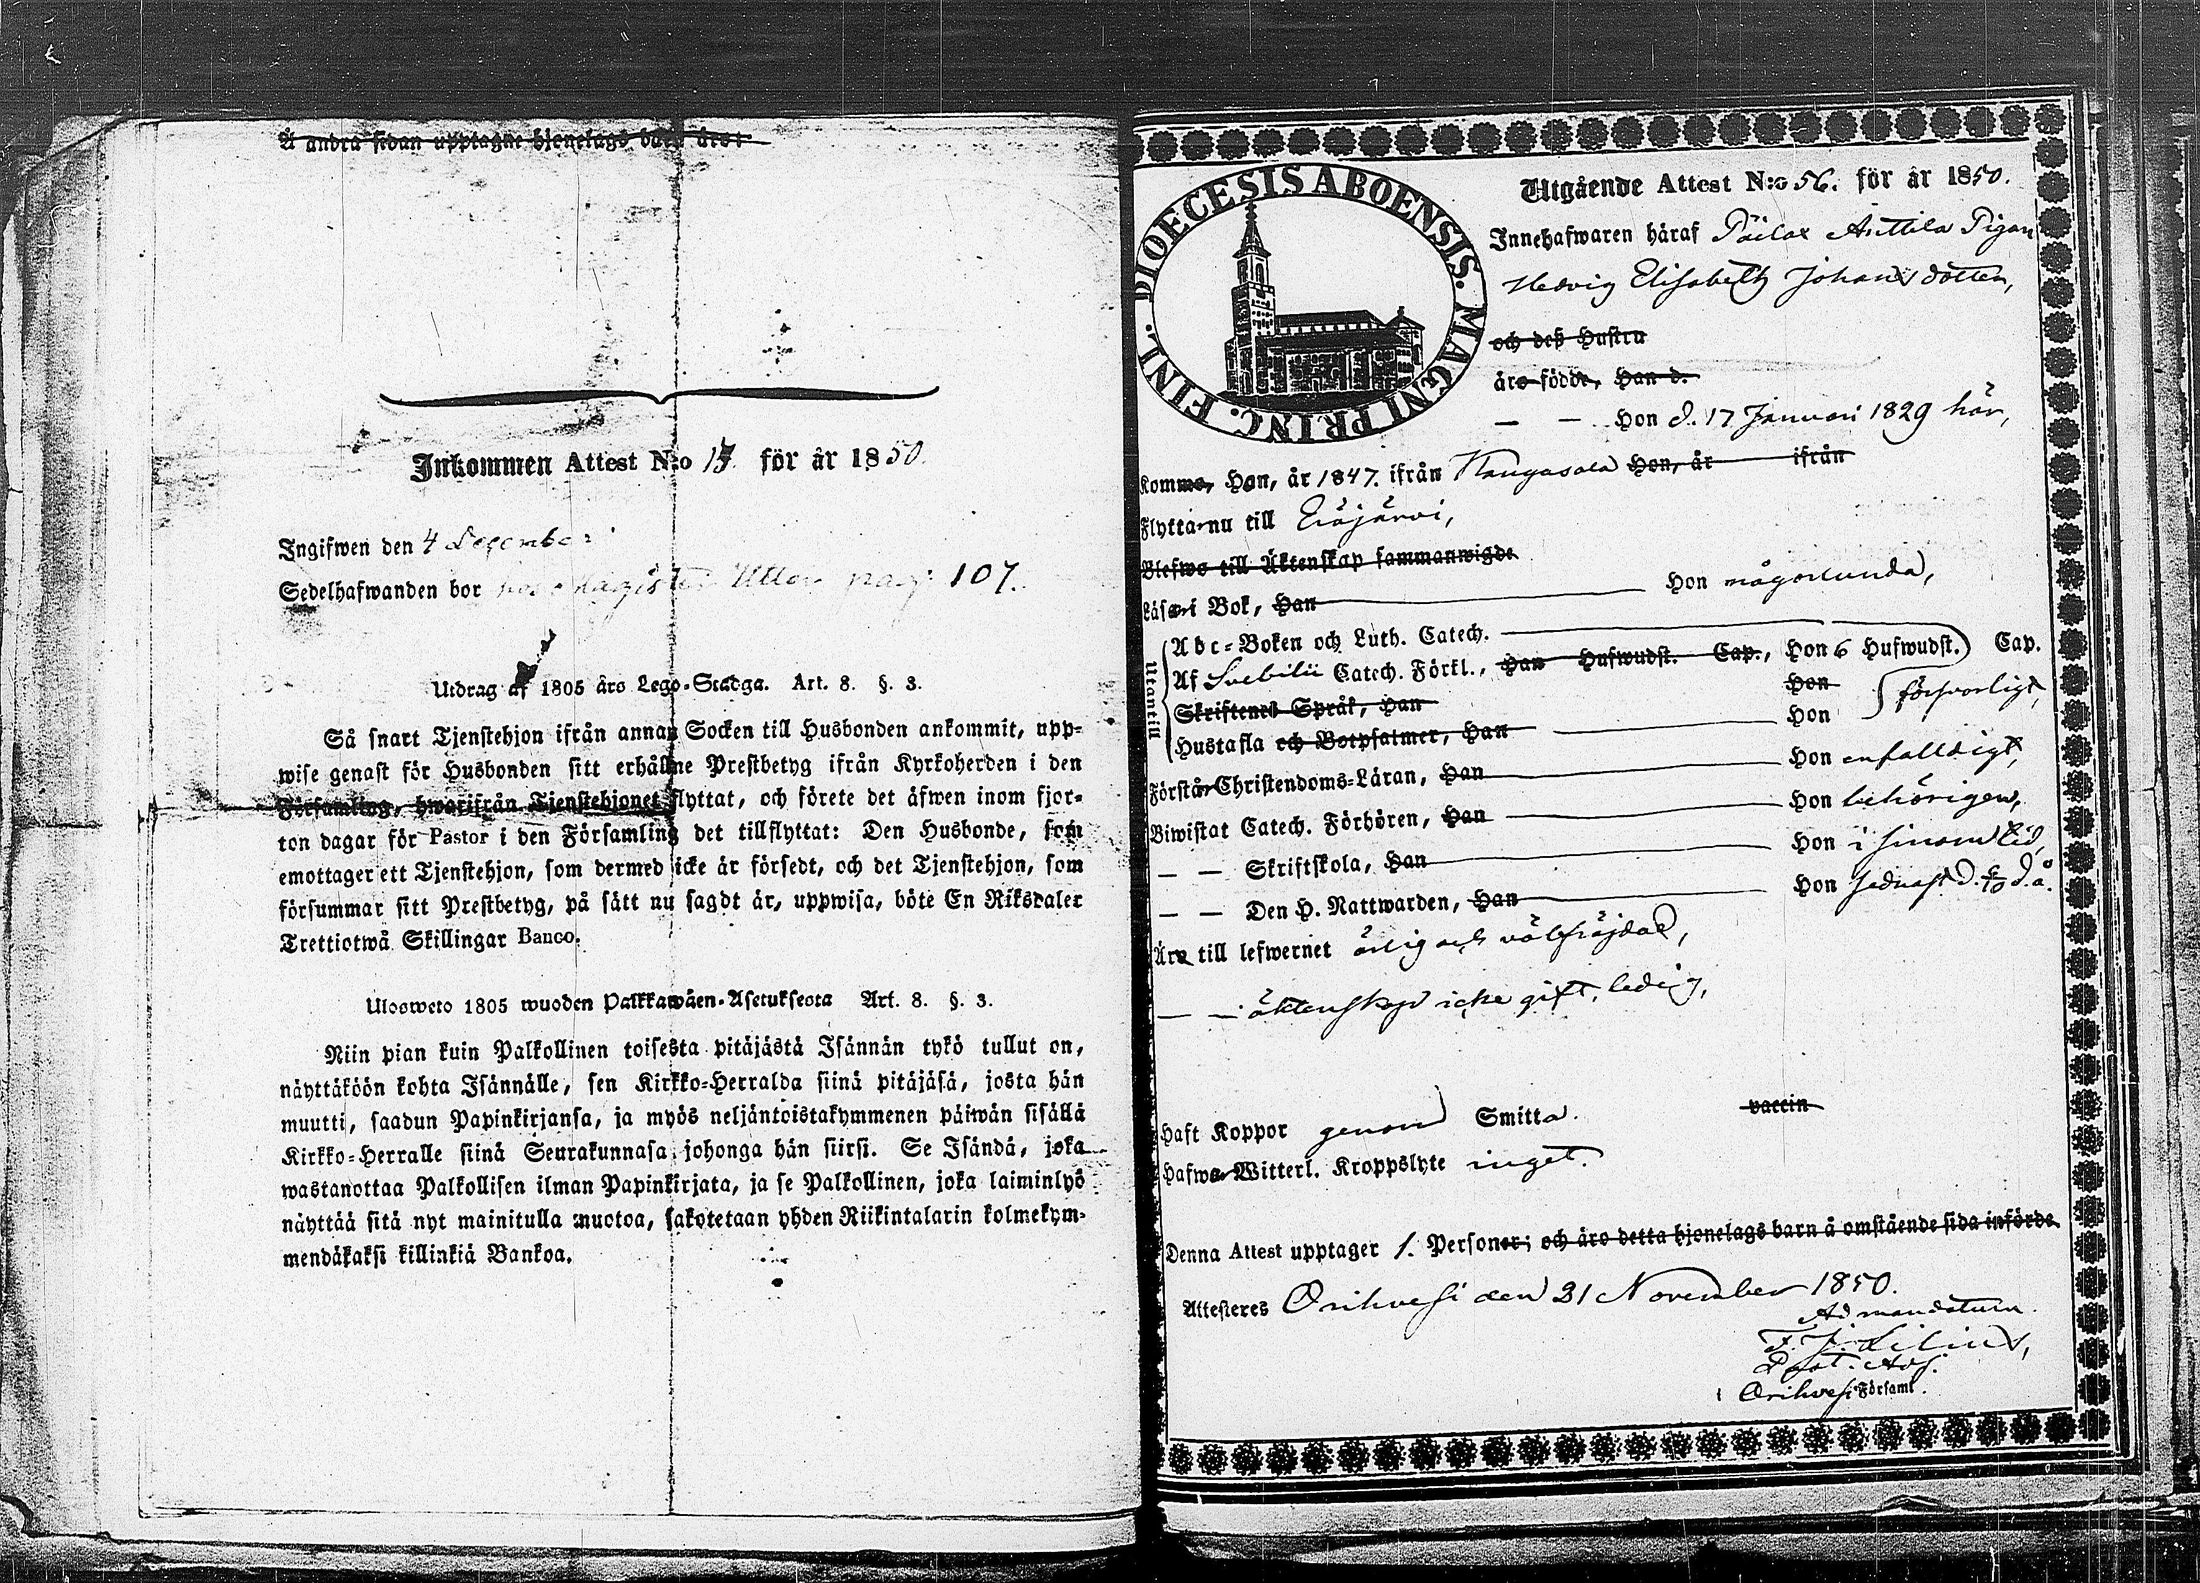 Å andra sidan upptagne hjonelags barn äro:
Inkommen Attest N:o 17. för år 1850.
Ingifwen den 4 December
Sedelhafwanden bor pag. 107.
Utdrag af 1805 års Lego-Stadga. Art. 8. §. 3.
Så snart Tjenstehjon ifrån annan Socken till Husbonden ankommit, upp-
wise genast för Husbonden sitt erhållne Prestbetyg ifrån Kyrkoherden i den
Församling, hwarifrån Tjenstehjonet flyttat, och förete det äfwen inom fjor-
ton dagar för Pastor i den Församling det tillflyttat: Den Husbonde, som
emottager ett Tjenstehjon, som dermed icke är försedt, och det Tjenstehjon, som
försummar sitt Prestbetyg, på sätt nu sagdt är, uppwisa, böte En Riksdaler
Trettiotwå Skillingar Banco.
Ulosweto 1805 wuoden Palkkawäen-Asetuksesta Art. 8. §. 3.
Niin pian kuin Palkollinen toisesta pitäjästä Isännän tykö tullut on,
näyttäköön kohta Isännälle, sen Kirkko-Herralda siinä pitäjäsä, josta hän
muutti, saadun Papinkirjansa, ja myös neljäntoistakymmenen päiwän sisällä
Kirkko-Herralle siinä Seurakunnasa johonga hän siirsi. Se Isändä, joka
wastanottaa Palkollisen ilman Papinkirjata, ja se Palkollinen, joka laiminlyö
näyttää sitä nyt mainitulla muotoa, sakotetaan yhden Riikintalarin kolmekym-
mendäkaksi killinkiä Bankoa.
DIOECESIS ABOENSIS. MAGNI PRINC. FINL.
Utgående Attest N:o 56. för år 1850.
Innehafwaren häraf Päilax Anttila Pigan
Hedvig Elisabeth Johansdotter,
och deß Hustru
äro födde, Han d.
— — Hon d. 17 Januari 1829 här,
Komne, Hon, år 1847. ifrån Kangasala Hon, år ifrån
Flytta nu till Eräjärvi,
Blefwo till Äktenskap sammanwigde
Läsa i Bok, Han Hon någorlunda,
Utantill
Abc-Boken och Luth. Catech.
Af Svebilii Catech. Förkl., Han Hufwudst. Cap., Hon 6 Hufwudst. Cap.
Skriftenes Språk, Han Hon
Hustafla och Botpsalmer, Han Hon försvarligt,
Förstår Christendoms-Läran, Han Hon enfalldigt,
Biwistat Catech. Förhören, Han Hon behörigen,
— — Skriftskola, Han Hon i sinom tid,
— — Den H. Nattwarden, Han Hon sednast d. 6/10 d. å.
Äro till lefwernet ärlig och välfräjdad,
— — i äktenskap icke gift, ledig,
Haft Koppor genom Smitta. vaccin
Hafwa Witterl. Kroppslyte inget.
Denna Attest upptager 1. Personer; och äro detta hjonelags barn å omstående sida införde.
Attesteres Orihvesi den 21 November 1850.
Ad mandatum
F. J. Lilius,
Past. Adj.
i Orihvesi Församl.